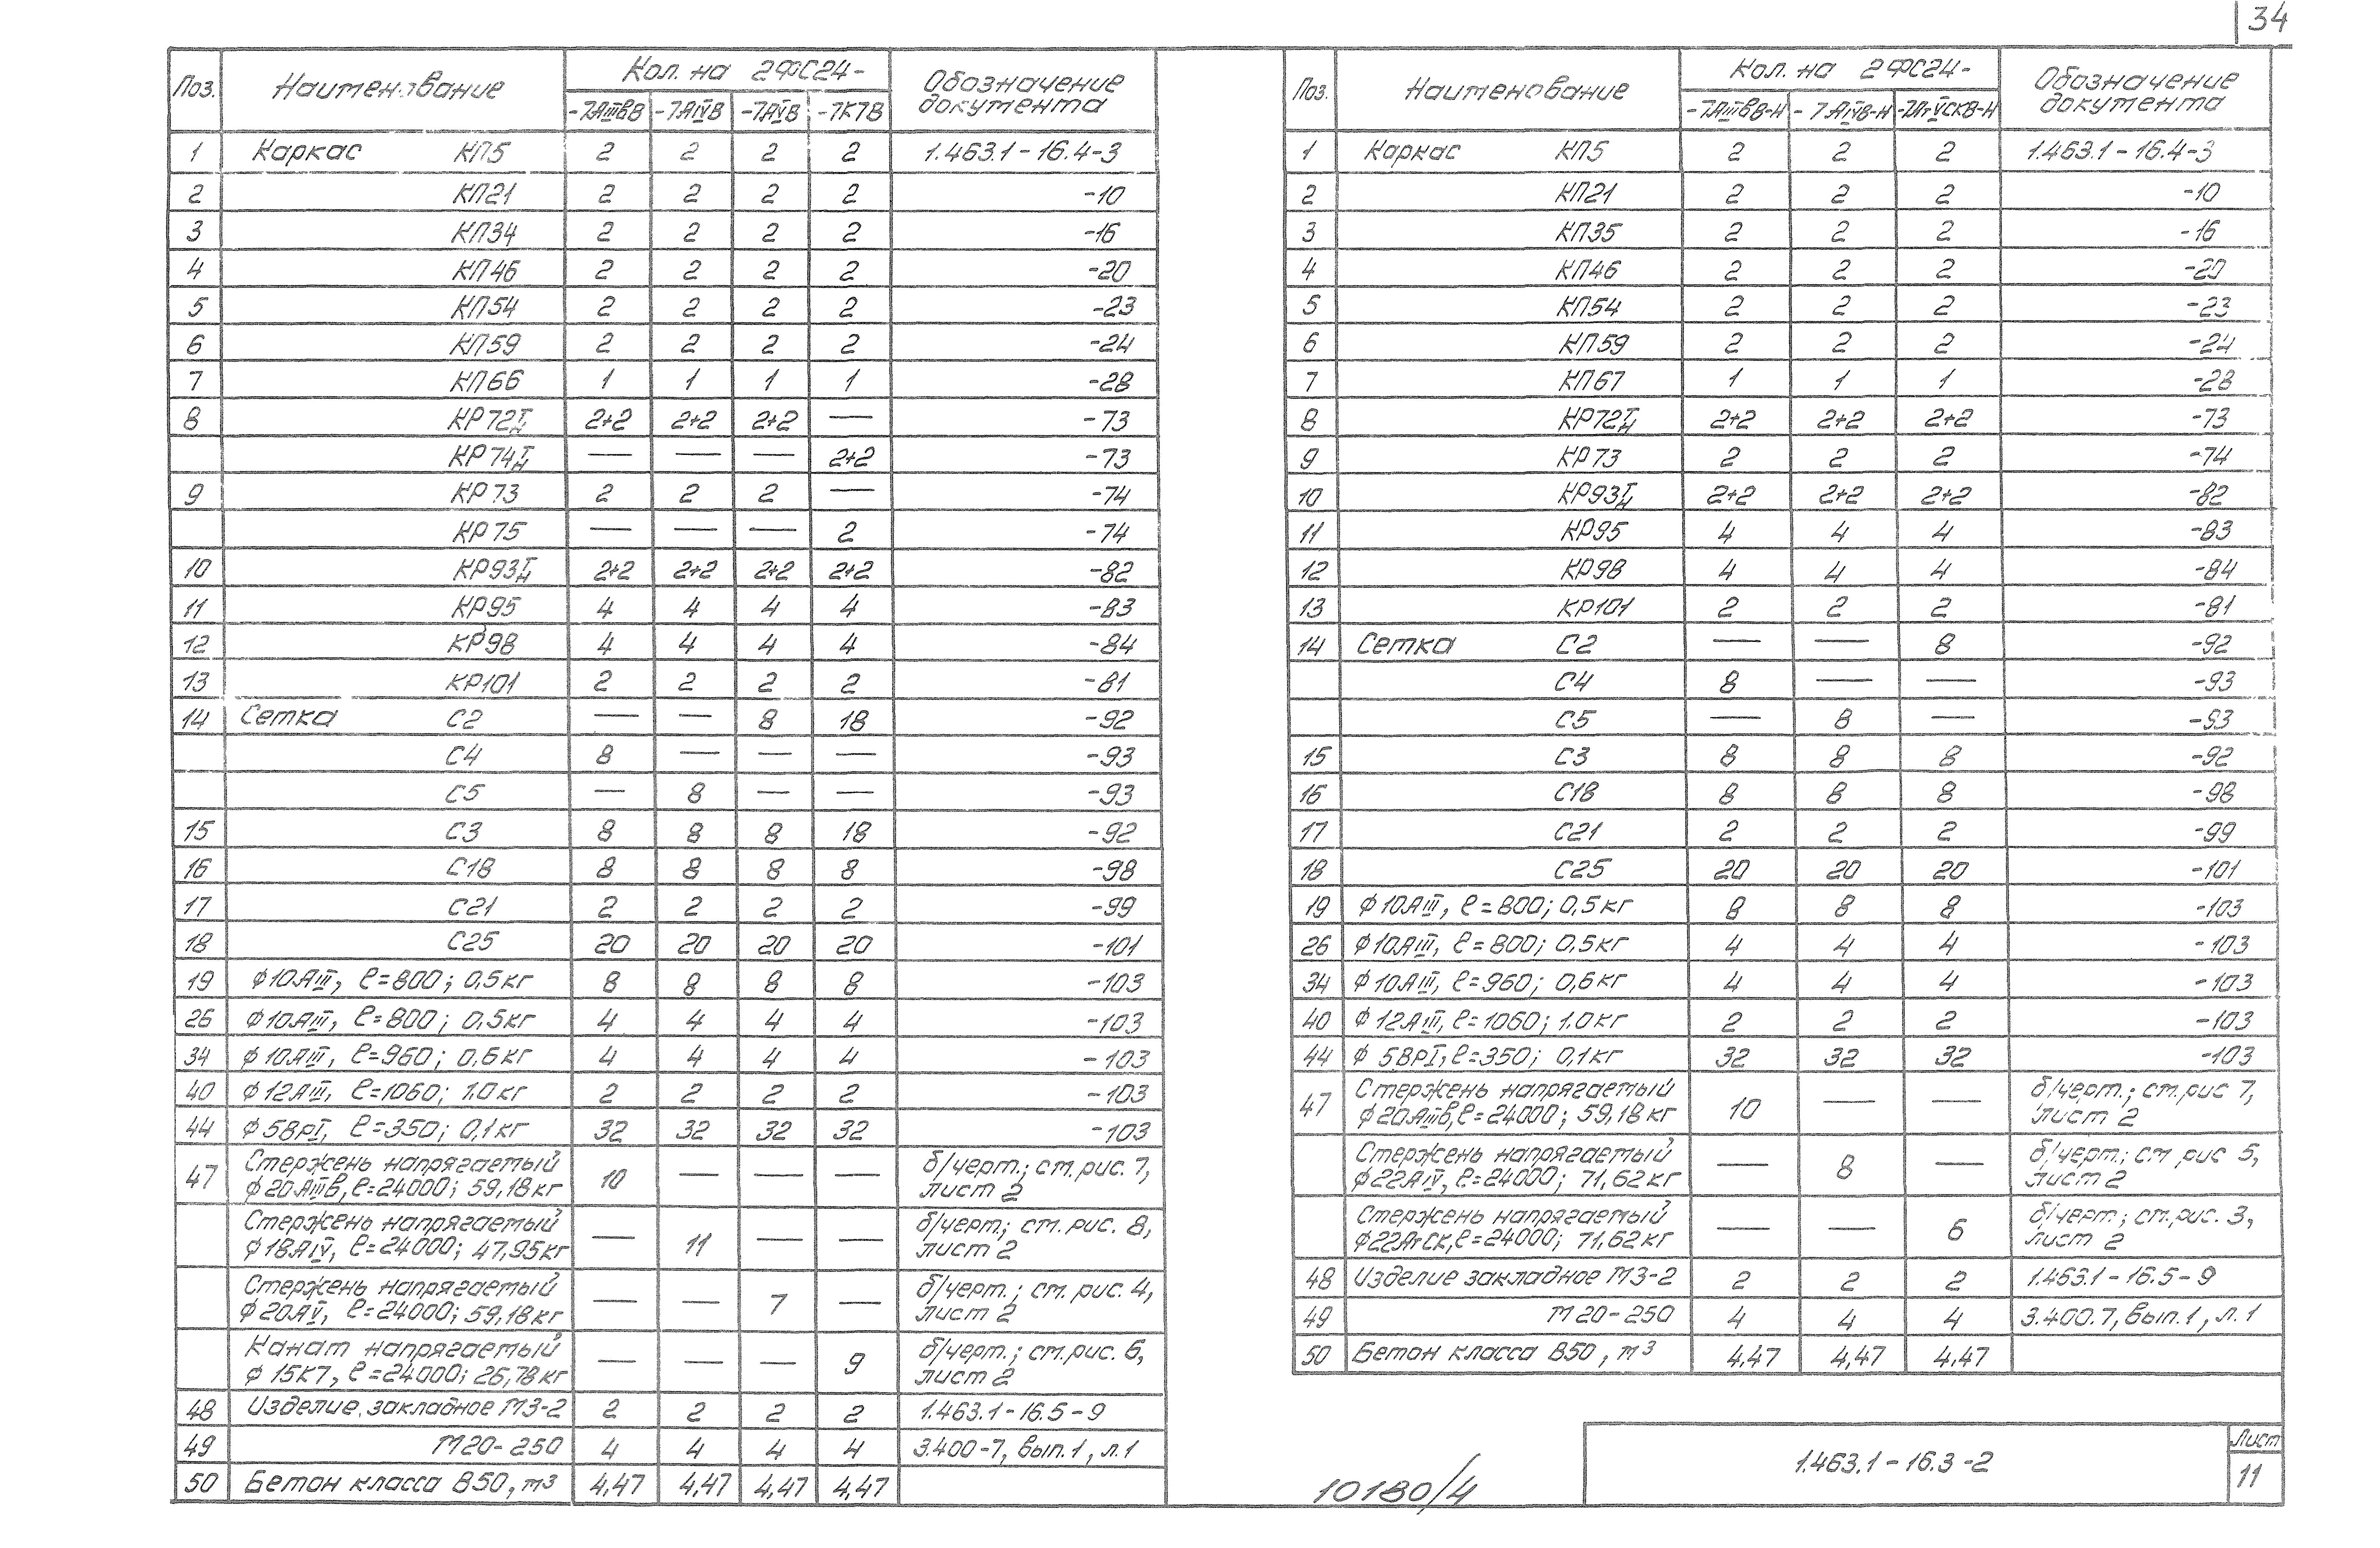 34
Поз. Наименование Кол. на 2ФС24- Обозначение документа
-7АIIIвВ -7АIVВ -7АVВ -7К7В
1 Каркас КП5 2 2 2 2 1.463.1-16.4-3
2 КП21 2 2 2 2 -10
3 КП34 2 2 2 2 -16
4 КП46 2 2 2 2 -20
5 КП54 2 2 2 2 -23
6 КП59 2 2 2 2 -24
7 КП66 1 1 1 1 -28
8 КР72Т/Н 2+2 2+2 2+2 — -73
КР74Т/Н — — — 2+2 -73
9 КР73 2 2 2 — -74
КР75 — — — 2 -74
10 КР93Т/Н 2+2 2+2 2+2 2+2 -82
11 КР95 4 4 4 4 -83
12 КР98 4 4 4 4 -84
13 КР101 2 2 2 2 -81
14 Сетка С2 — — 8 18 -92
С4 8 — — — -93
С5 — 8 — — -93
15 С3 8 8 8 18 -92
16 С18 8 8 8 8 -98
17 С21 2 2 2 2 -99
18 С25 20 20 20 20 -101
19 ф10АIII, ℓ=800; 0,5кг 8 8 8 8 -103
26 ф10АIII, ℓ=800; 0,5кг 4 4 4 4 -103
34 ф10АIII, ℓ=960; 0,6кг 4 4 4 4 -103
40 ф12АIII, ℓ=1060; 1,0кг 2 2 2 2 -103
44 ф5ВрI, ℓ=350; 0,1кг 32 32 32 32 -103
47 Стержень напрягаемый 10 — — — б/черт.; см. рис. 7,
ф20АIIIв, ℓ=24000; 59,18кг лист 2
Стержень напрягаемый — 11 — — б/черт.; см. рис. 8,
ф18АIV, ℓ=24000; 47,95кг лист 2
Стержень напрягаемый — — 7 — б/черт.; см. рис. 4,
ф20АV, ℓ=24000; 59,18кг лист 2
Канат напрягаемый — — — 9 б/черт.; см. рис. 6,
ф15К7, ℓ=24000; 26,78кг лист 2
48 Изделие закладное МЗ-2 2 2 2 2 1.463.1-16.5-9
49 М20-250 4 4 4 4 3.400-7, вып.1, л.1
50 Бетон класса В50, м³ 4,47 4,47 4,47 4,47
Поз. Наименование Кол. на 2ФС24- Обозначение документа
-7АIIIвВ-Н -7АIVВ-Н -7АтVСКВ-Н
1 Каркас КП5 2 2 2 1.463.1-16.4-3
2 КП21 2 2 2 -10
3 КП35 2 2 2 -16
4 КП46 2 2 2 -20
5 КП54 2 2 2 -23
6 КП59 2 2 2 -24
7 КП67 1 1 1 -28
8 КР72Т/Н 2+2 2+2 2+2 -73
9 КР73 2 2 2 -74
10 КР93Т/Н 2+2 2+2 2+2 -82
11 КР95 4 4 4 -83
12 КР98 4 4 4 -84
13 КР101 2 2 2 -81
14 Сетка С2 — — 8 -92
С4 8 — — -93
С5 — 8 — -93
15 С3 8 8 8 -92
16 С18 8 8 8 -98
17 С21 2 2 2 -99
18 С25 20 20 20 -101
19 ф10АIII, ℓ=800; 0,5кг 8 8 8 -103
26 ф10АIII, ℓ=800; 0,5кг 4 4 4 -103
34 ф10АIII, ℓ=960; 0,6кг 4 4 4 -103
40 ф12АIII, ℓ=1060; 1,0кг 2 2 2 -103
44 ф5ВрI, ℓ=350; 0,1кг 32 32 32 -103
47 Стержень напрягаемый 10 — — б/черт.; см. рис 7,
ф20АIIIв, ℓ=24000; 59,18кг лист 2
Стержень напрягаемый — 8 — б/черт.; см. рис 5,
ф22АIV, ℓ=24000; 71,62кг лист 2
Стержень напрягаемый — — 6 б/черт.; см. рис. 3,
ф22АтСК, ℓ=24000; 71,62кг лист 2
48 Изделие закладное МЗ-2 2 2 2 1.463.1-16.5-9
49 М20-250 4 4 4 3.400.7, вып.1, л.1
50 Бетон класса В50, м³ 4,47 4,47 4,47
10180/4
1.463.1-16.3-2
Лист
11